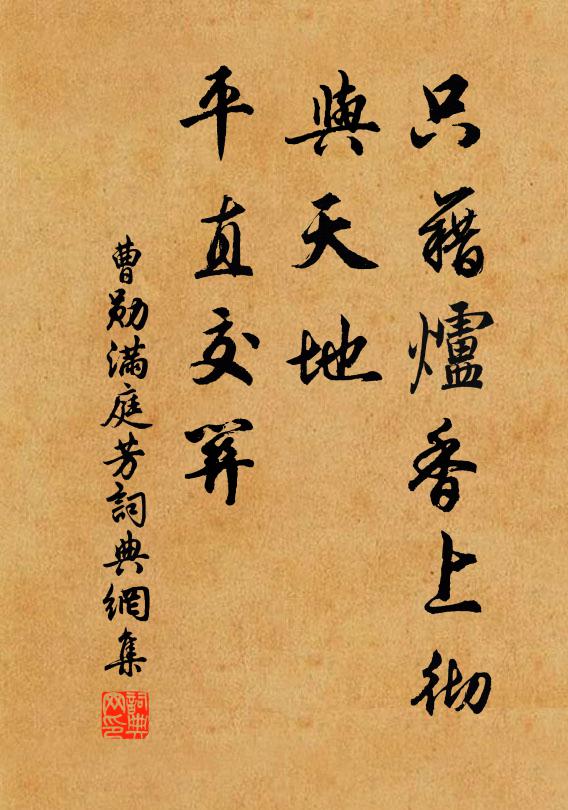 只藉爐香上彻
與天地
平直交羿
曹勋滿庭芳詞典網集
詞典网印